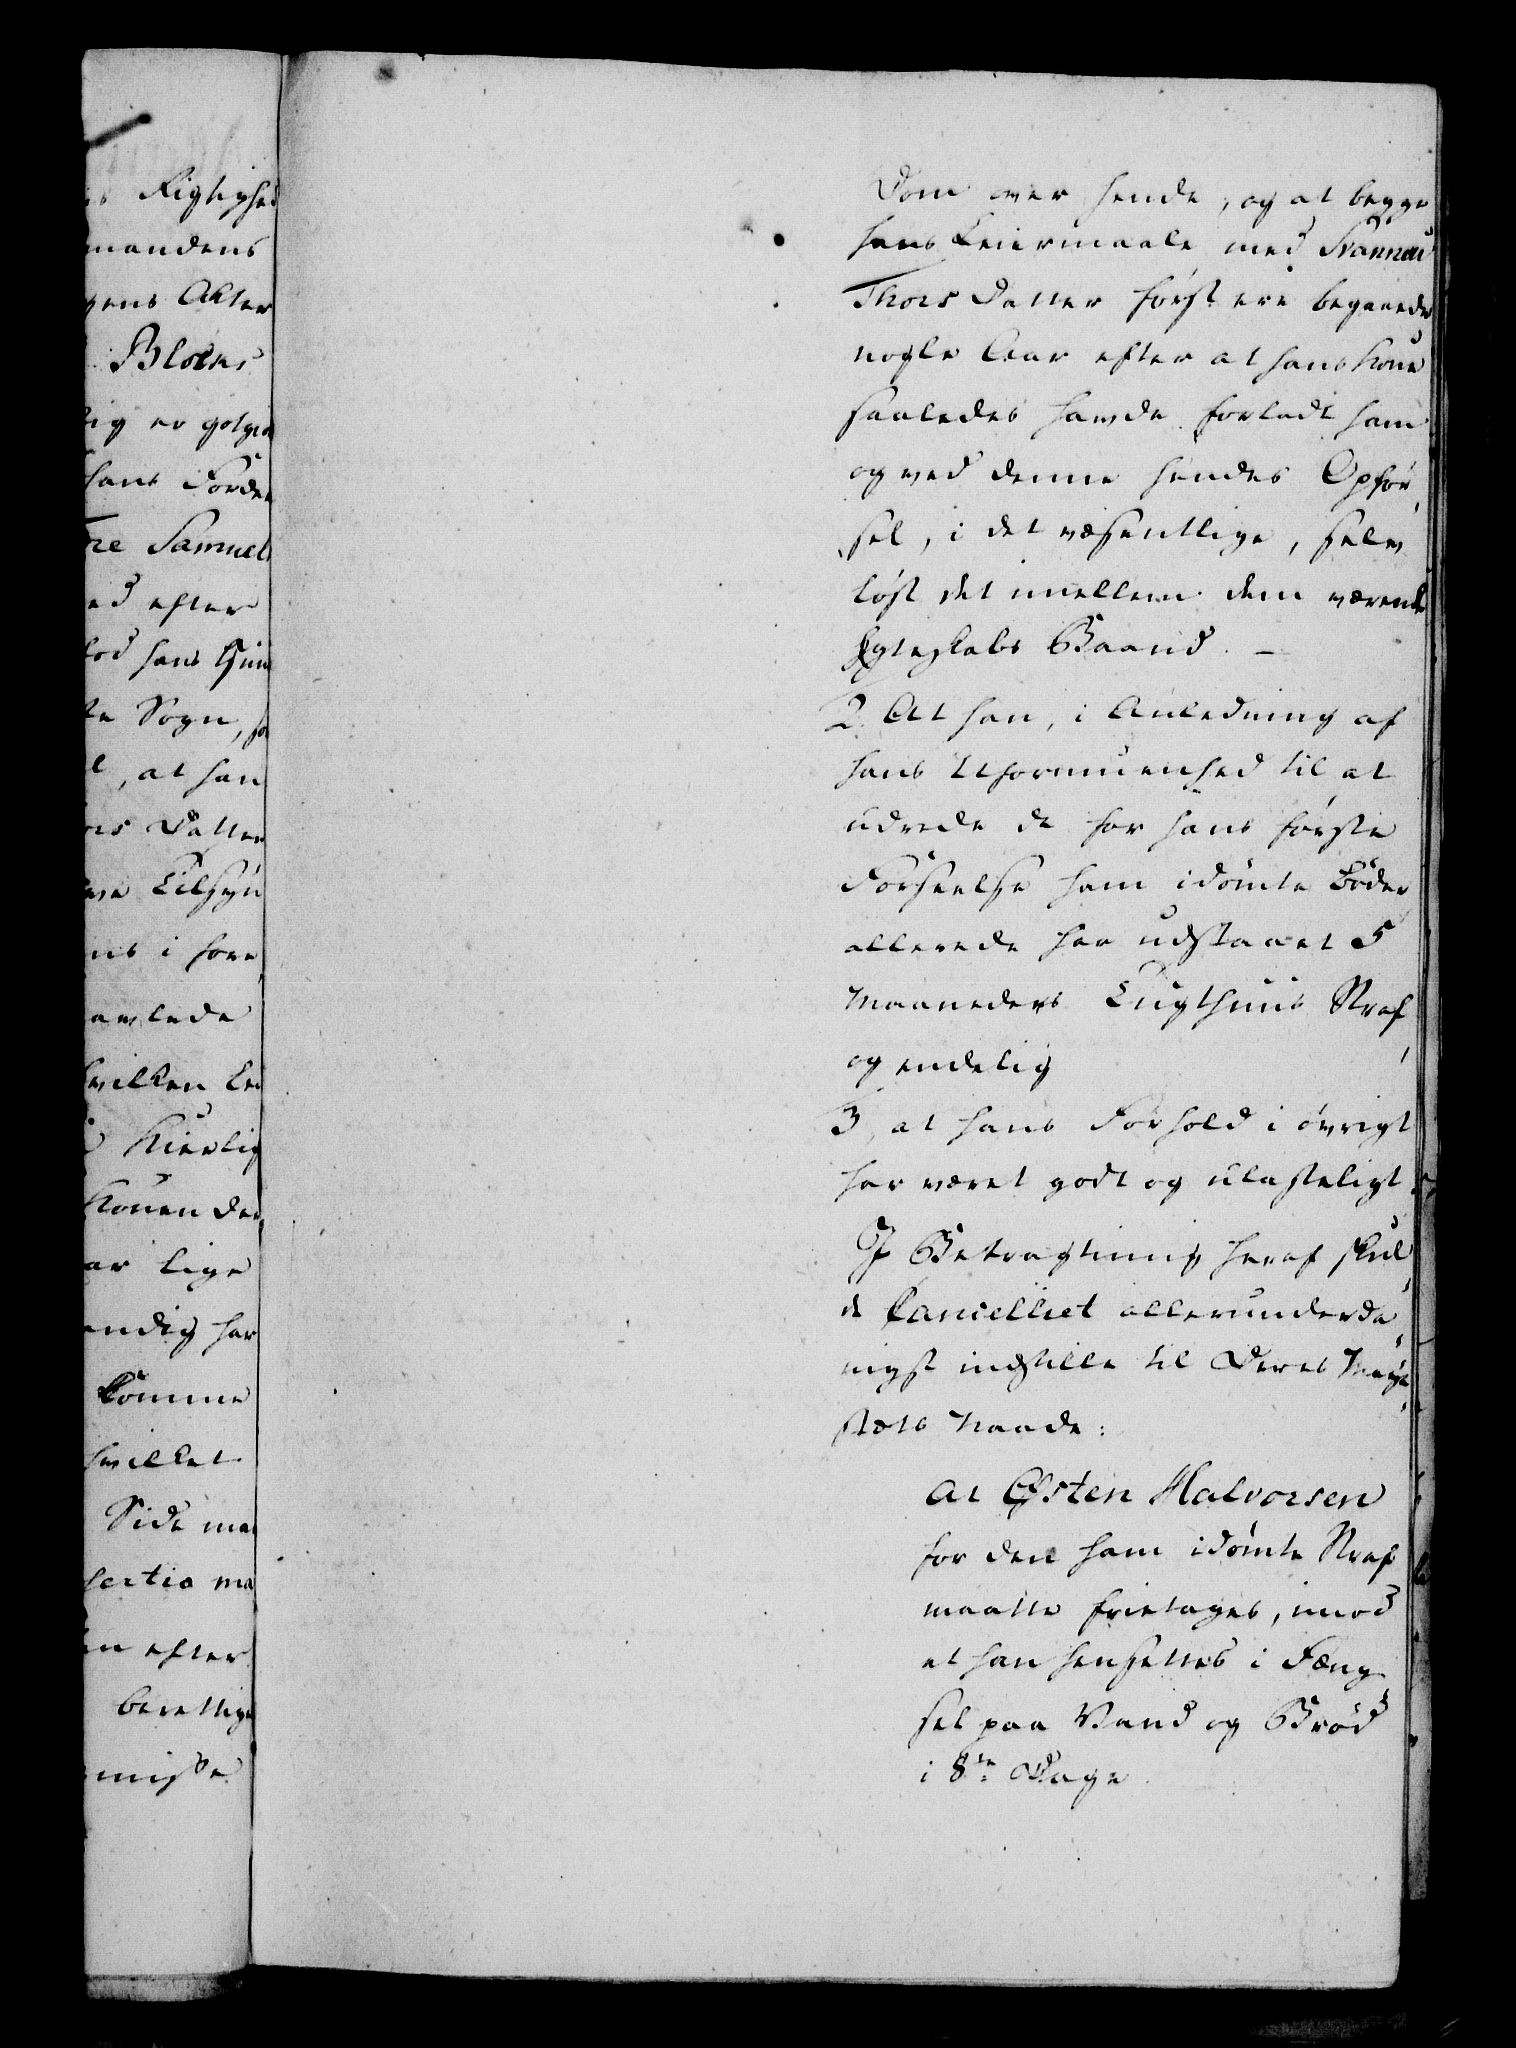 Rigtighed
mandens
gens Acter
Blochs
tig er
hans Forde
Tre Samuels
ed efter
lod hans
te Sogn, so
l, at han
ors Datter
Tilsyn
ns i fore
avlede
hvilken Lei
Kierlig
Konen der
ar lige
endig har
komme
hvilket
Side ma
sertio ma
en efter
berettige
misse
Dom over hende, og at begge
hans Leiermaale med Svannau
Thors Datter først ere begaaede
nogle Aar efter at hans Kone
saaledes havde forladt ham
og ved denne hendes Opfør,
sel, i det væsentlige, selv
løst det imellem dem værende
Egteskabs Baand. –
2. At han, i Anledning af
hans Uformuenhed til at
udrede de for hans første
Forseelse ham idømte Bøder
allerede har udstaaet 5
Maaneders Tugthuus Straf,
og endelig
3, at hans Forhold i øvrigt
har været godt og ulasteligt.
I Betragtning heraf skul,
de Cancelliet allerunderda,
nigst indstille til Deres Maje,
stæts Naade:
At Østen Halvorsen
for den ham idømte Straf
maatte frietages, imod
at han hensettes i Fæng,
sel paa Vand og Brød
i 8te Dage.